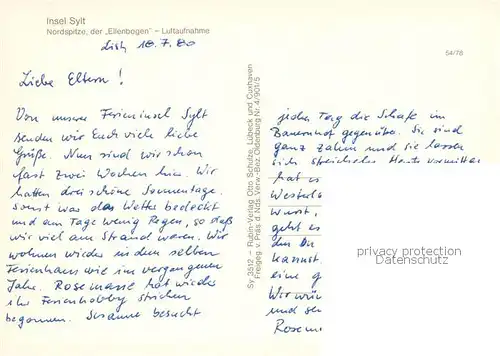 Insel Sylt
Nordspitze, der „Ellenbogen" – Luftaufnahme
List 18.7.80
54/78
Liebe Eltern!
Von unsrer Ferieninsel Sylt
senden wir Euch viele liebe
Grüße. Nun sind wir schon
fast zwei Wochen hier. Wir
hatten drei schöne Sonnentage.
Sonst war das Wetter bedeckt
und am Tage wenig Regen, so daß
wir viel am Strand waren. Wir
wohnen wieder in dem selben
Ferienhaus wie im vergangenen
Jahr. Rosemarie hat wieder
ihr Ferienhobby stricken
begonnen. Susanne besucht
Sy 3512 – Rubin-Verlag Otto Schulze, Lübeck und Cuxhaven
Freigeg. v. Präs. d. Nds. Verw.-Bez. Oldenburg Nr. 4/901/5
jeden Tag die Schafe im
Bauernhof gegenüber. Sie sind
ganz zahm und sie lassen
sich streicheln. Heute vormittag
hat es
Westerla
Wurst,
geht es
den Du
kannst.
eine g
Wir wün
und se
Rosema
privacy protection
Datenschutz